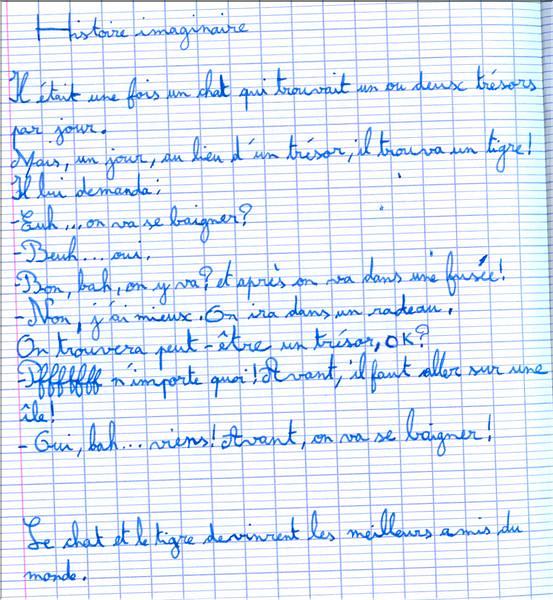 Histoire imaginaire
Il était une fois un chat qui trouvait un ou deux trésors
par jour.
Mais, un jour, au lieu d'un trésor, il trouva un tigre!
Il lui demanda:
-Euh... on va se baigner?
-Beuh... oui.
-Bon, bah, on y va? et après on va dans une fusée!
-Non, j'ai mieux. On ira dans un radeau.
On trouvera peut-être un trésor, OK?
-Pffffffff n'importe quoi! Avant, il faut aller sur une
île!
- Oui, bah... viens! Avant, on va se baigner!
Le chat et le tigre devinrent les meilleurs amis du
monde.